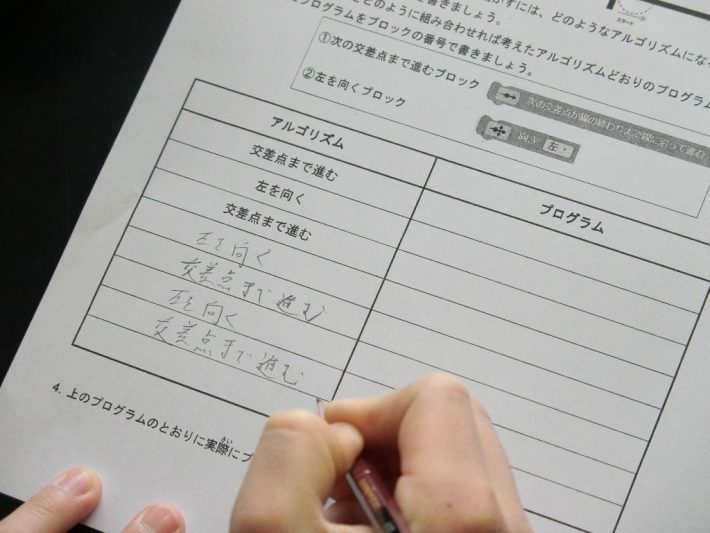 スタート
かすには、どのようなアルゴリズムにな
を書きましょう。
どのように組み合わせれば考えたアルゴリズムどおりのプログラム
プログラムをブロックの番号で書きましょう。
①次の交差点まで進むブロック
次の交差点か線の終わりまで線に沿って進む
②左を向くブロック
向き 左
アルゴリズム
プログラム
交差点まで進む
左を向く
交差点まで進む
左を向く
交差点まで進む
左を向く
交差点まで進む
4. 上のプログラムのとおりに実際にプ
さい